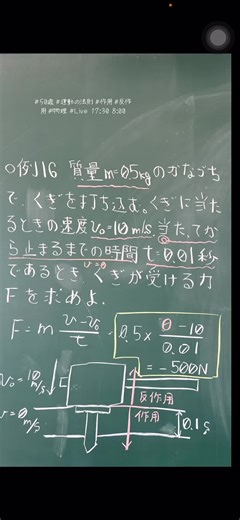 #50歳 #運動の法則 #作用 #反作
用 #物理 #Live 17:30 8:00
○例116 質量m=0.5kgのかなづち
で、くぎを打ち込む。くぎに当た
るときの速度v₀=10m/s 当たってか
ら止まるまでの時間 t=0.01秒
v=0
であるとき、くぎが受ける力
Fを求めよ。
F = m (v-v₀)/t = 0.5 × (0-10)/0.01
= -500N
v₀=10 m/s
反作用
v=0 m/s
作用
0.1